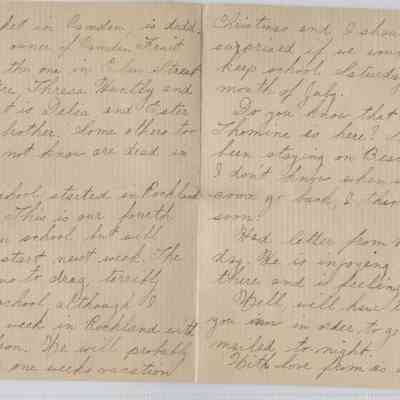 ket in Camden, is dead,
owner of Camden Fruit
the one in Elm Street
Theresa Huntley and
t is Delia and Ester
brother. Some others too
not know are dead in
chool started in Rockland
This is our fourth
school but will
start next week. The
to drag terribly
school, although I
week in Rockland with
on. We will probably
one weeks vacation
Christmas and I shou
surprised if we woul
keep school Saturda
month of July.
Do you know that
Thomine is here?
been staying on Bea
I dont know when s
goes back, I thin
soon.
Had letter from
day. He is enjoying
there and is feeling
Well, will have t
you in order to g
mailed to-night.
With love from as